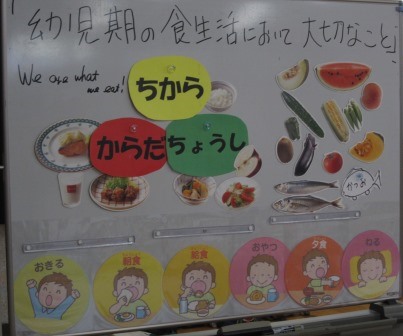 「幼児期の食生活において大切なこと」
We are what
we eat!
ちから
からだ
ちょうし
かつお
おきる
朝食
給食
おやつ
夕食
ねる